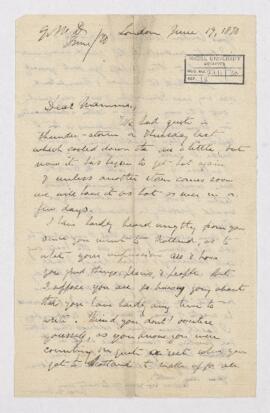 G. M. D.
June/90
London June 17, 1890
McGILL UNIVERSITY
ARCHIVES
ACC. NO.
REF.
Dear Mamma,
We had quite a
thunder-storm on Thursday last
which cooled down the air a little, but
now it has begun to get hot again
& unless another storm comes soon
we will have it as hot as ever in a
few days.
I have hardly heard anything from you
since you went to Scotland, as to
what your impressions are & how
you find things, places, & people. But
I suppose you are so busy going about
that you have hardly any time to
write. Mind you don't overtire
yourself, as you know you were
counting on quite a rest when you
got to Scotland to make up for all